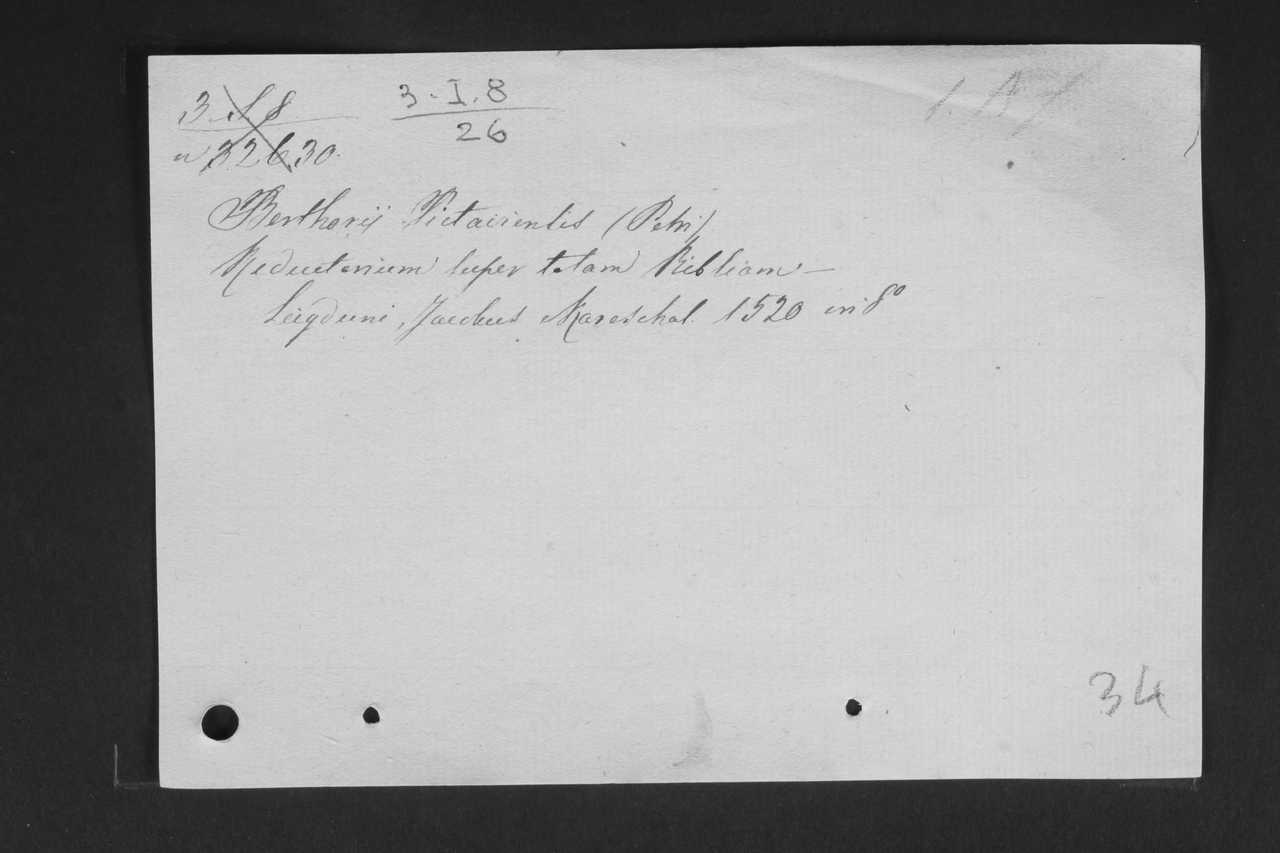 3-I-8
26
Berthorij Pictaviensis (Petri)
Reductorium super totam Bibliam —
Lugduni, Jacobus Mareschal. 1520 in 8º
34